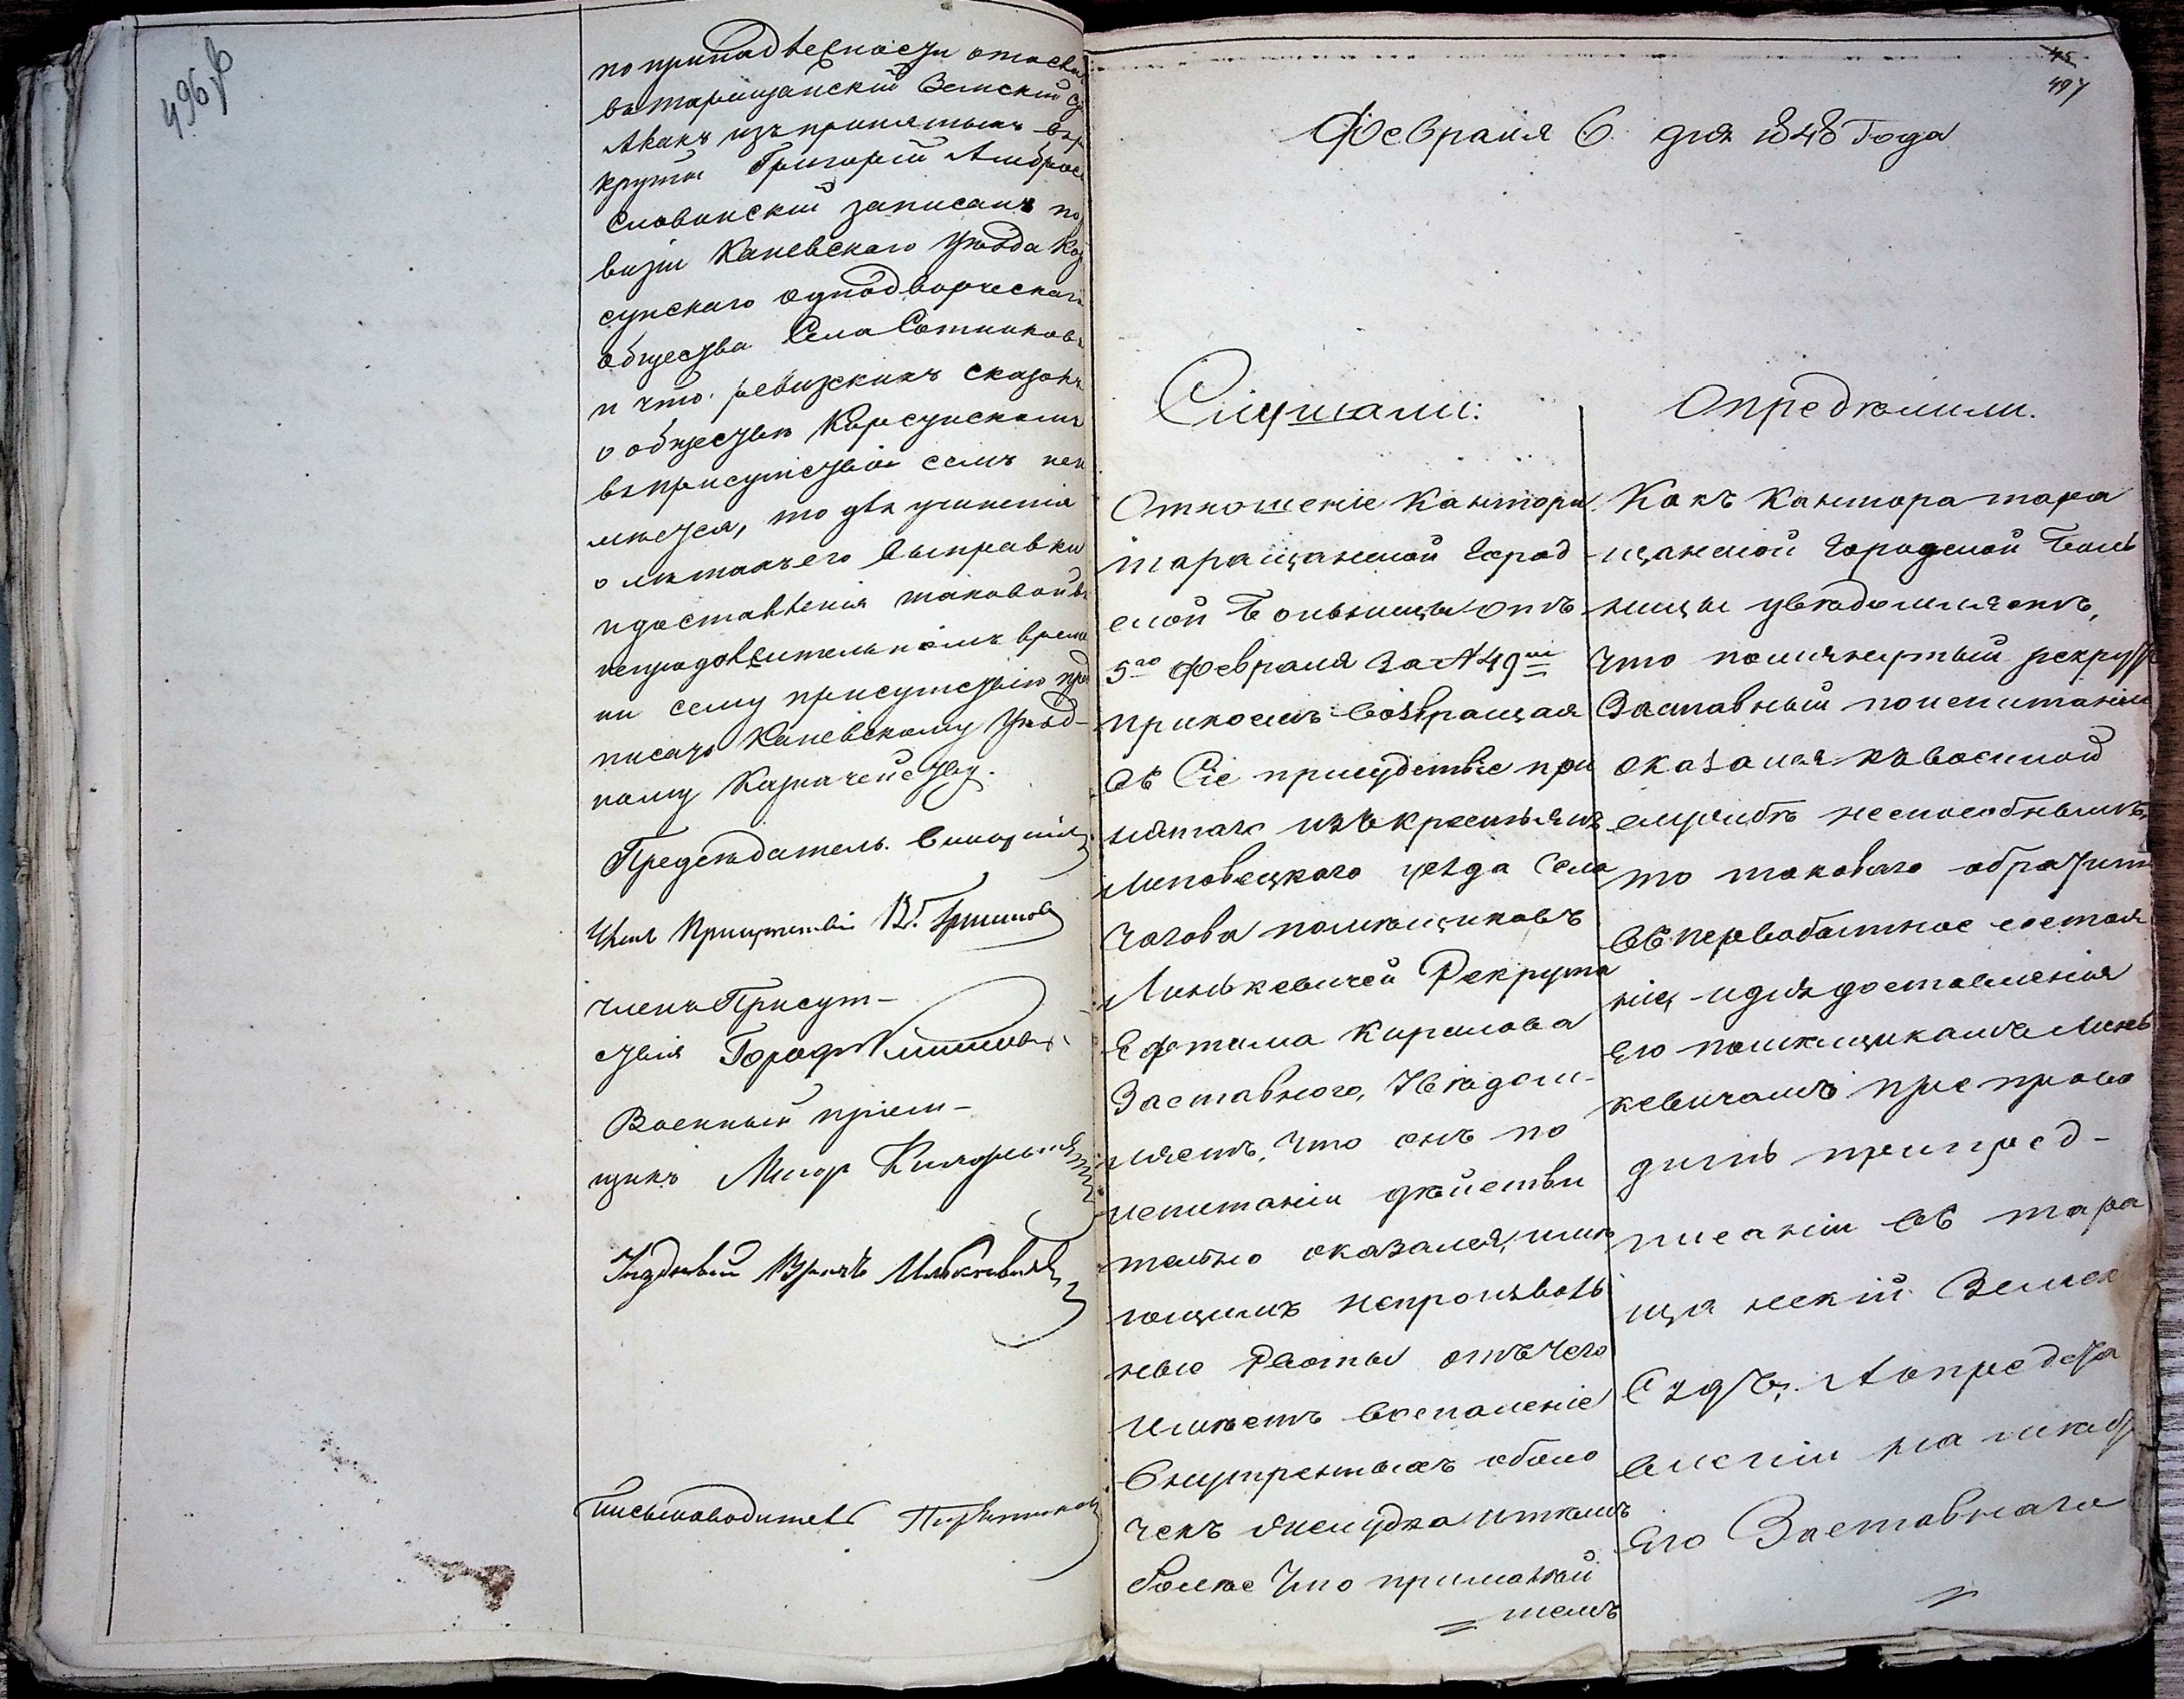 496 об
по принадлежности отосла
въ таращанскій Земскій Су
А какъ изъ принятыхъ въ ре
круты Григорій Амброс
Словинскій записанъ по
визіи Каневскаго уѣзда Кор
сунскаго однодворческаго
общества Села Сотников
и что ревизскихъ сказокъ
о обществѣ Корсунскомъ
въ присутствіи семъ не и
мѣется, то для учиненія
о лѣтахъ его выправки
и доставленія таковой въ
непродолжительномъ време
ни сему присутствію пред
писать Каневскому Уѣзд-
ному Казначейству.
Предсѣдатель
Членъ Присутствія
членъ Присут-
ствія
Военный пріем-
щикъ Маіор
Уѣздный Врачъ
Письмоводитель
45
497
Февраля 6 дня 1848 Года
Слушали:
Отношеніе Канторы
таращанской Город
ской Больницы отъ
5го февраля за № 49м
при коемъ возвращая
въ Сіе присудствіе при
нятаго изъ крестьянъ
Липовецкаго уезда Села
Чагова помѣщиковъ
Линькевичей Рекрута
Ефтима Кирилова
Заставного, Увѣдом-
ляетъ, что онъ по
испытаніи дѣйстви
тельно оказался, имѣ
ющимъ непроизволь
ную Рвоты отъ чего
имѣетъ воспаленіе
внутренныхъ оболо
чекъ желудка и тѣмъ
болѣе что принималъ
Опредѣлили.
Какъ Кантора тара
щанской Городской Боль
ницы увѣдомляетъ,
что помянутый рекрутъ
Заставный по испытаніи
оказался къ военной
службѣ неспособнымъ,
то таковаго обратить
въ первобытное состоя
ніе, и для доставленія
Его помѣщикамъ Линь
кевичамъ препрово
дить при пред-
писаніи въ тара
щанскій Земск
Судъ, А о предста
вленіи на мѣсто
Его Заставнаго